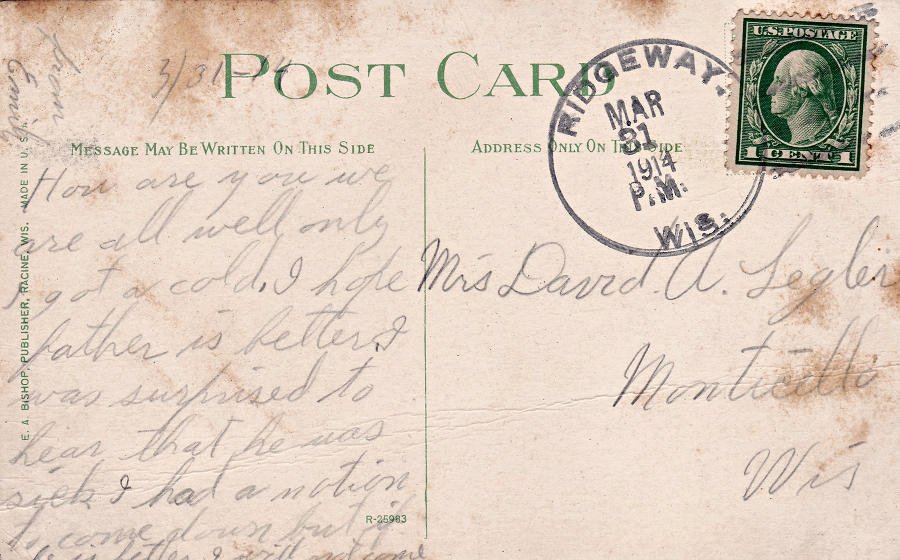 From
Emily
3/31-14
POST CARD
MESSAGE MAY BE WRITTEN ON THIS SIDE
ADDRESS ONLY ON THIS SIDE
RIDGEWAY,
MAR
31
1914
P.M.
WIS.
U.S. POSTAGE
1 CENT 1
How are you we
are all well only
I got a cold. I hope
father is better. I
was surprised to
hear that he was
sick I had a notion
to come down but if
he is better I will not come
Mrs David A. Legler
Monticello
Wis
E. A. BISHOP, PUBLISHER, RACINE, WIS. MADE IN U. S.
R-25983